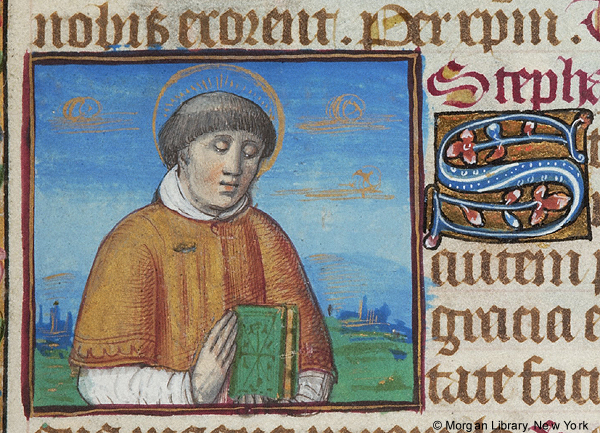 nobis exorent. Per xpm.
Stepha
S
autem p
gracia e
tate faci
© Morgan Library, New York